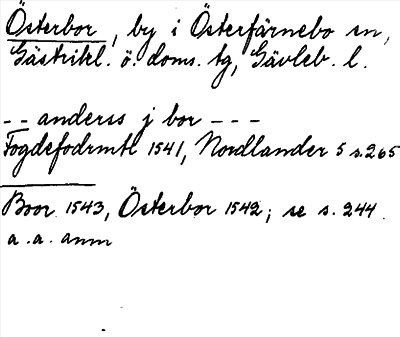 Österbor, by i Österfärnebo sn,
Gästrikl. ö. doms. tg, Gävleb. l.
-- anderss j bor ---
Fogdefodrmtl 1541, Nordlander 5 s.265
Boor 1543, Österbor 1542; se s. 244
a.a. anm